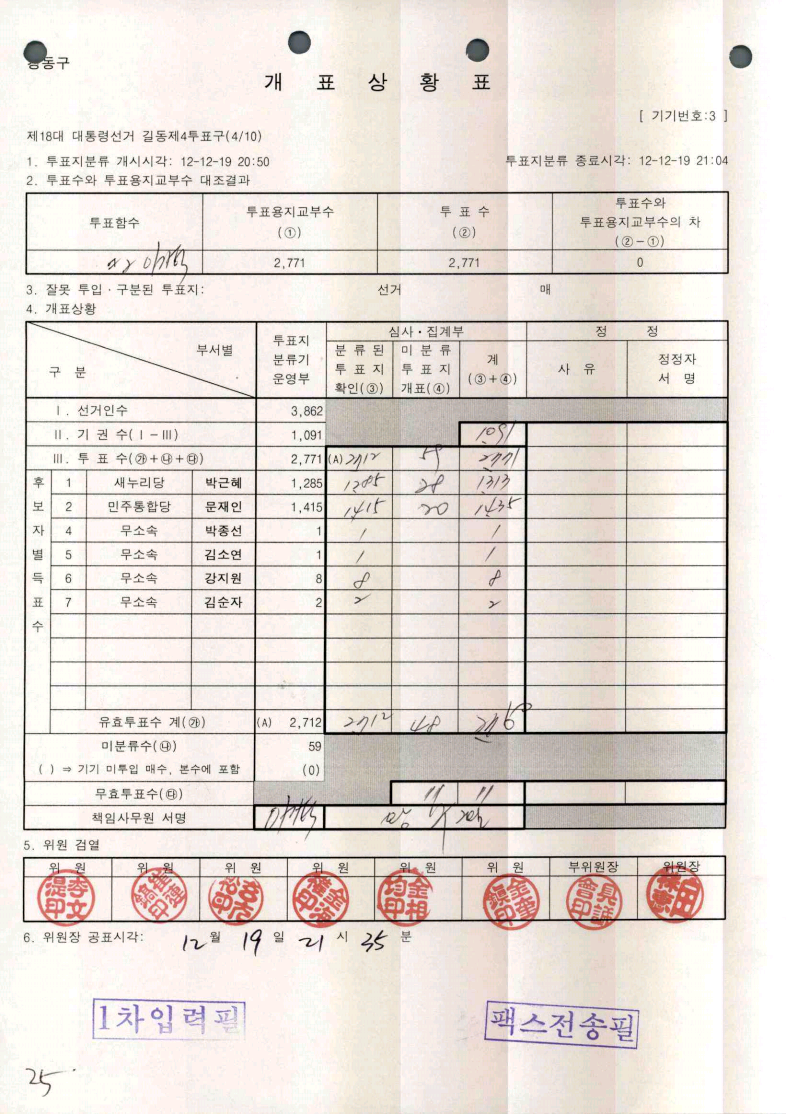 강동구
개 표 상 황 표
[ 기기번호:3 ]
제18대 대통령선거 길동제4투표구(4/10)
1. 투표지분류 개시시각: 12-12-19 20:50 투표지분류 종료시각: 12-12-19 21:04
2. 투표수와 투표용지교부수 대조결과
투표함수 투표용지교부수 (①) 투 표 수 (②) 투표수와 투표용지교부수의 차 (②-①)
2,771 2,771 0
3. 잘못 투입·구분된 투표지: 선거 매
4. 개표상황
구 분 부서별 투표지 분류기 운영부 심사·집계부 정 정
분 류 된 투 표 지 확인(③) 미 분 류 투 표 지 개표(④) 계 (③+④) 사 유 정정자 서 명
Ⅰ. 선거인수 3,862
Ⅱ. 기 권 수(Ⅰ-Ⅲ) 1,091 1091
Ⅲ. 투 표 수(㉮+㉯+㉰) 2,771 (A) 2712 59 2771
후보자별득표수
1 새누리당 박근혜 1,285 1285 28 1313
2 민주통합당 문재인 1,415 1415 20 1435
4 무소속 박종선 1 1 1
5 무소속 김소연 1 1 1
6 무소속 강지원 8 8 8
7 무소속 김순자 2 2 2
유효투표수 계(㉮) (A) 2,712 2712 48 2760
미분류수(㉯) 59
( ) ⇒ 기기 미투입 매수, 본수에 포함 (0)
무효투표수(㉰) 11 11
책임사무원 서명
5. 위원 검열
위 원 위 원 위 원 위 원 위 원 위 원 부위원장 위원장
6. 위원장 공표시각: 12 월 19 일 21 시 35 분
1차입력필
팩스전송필
25